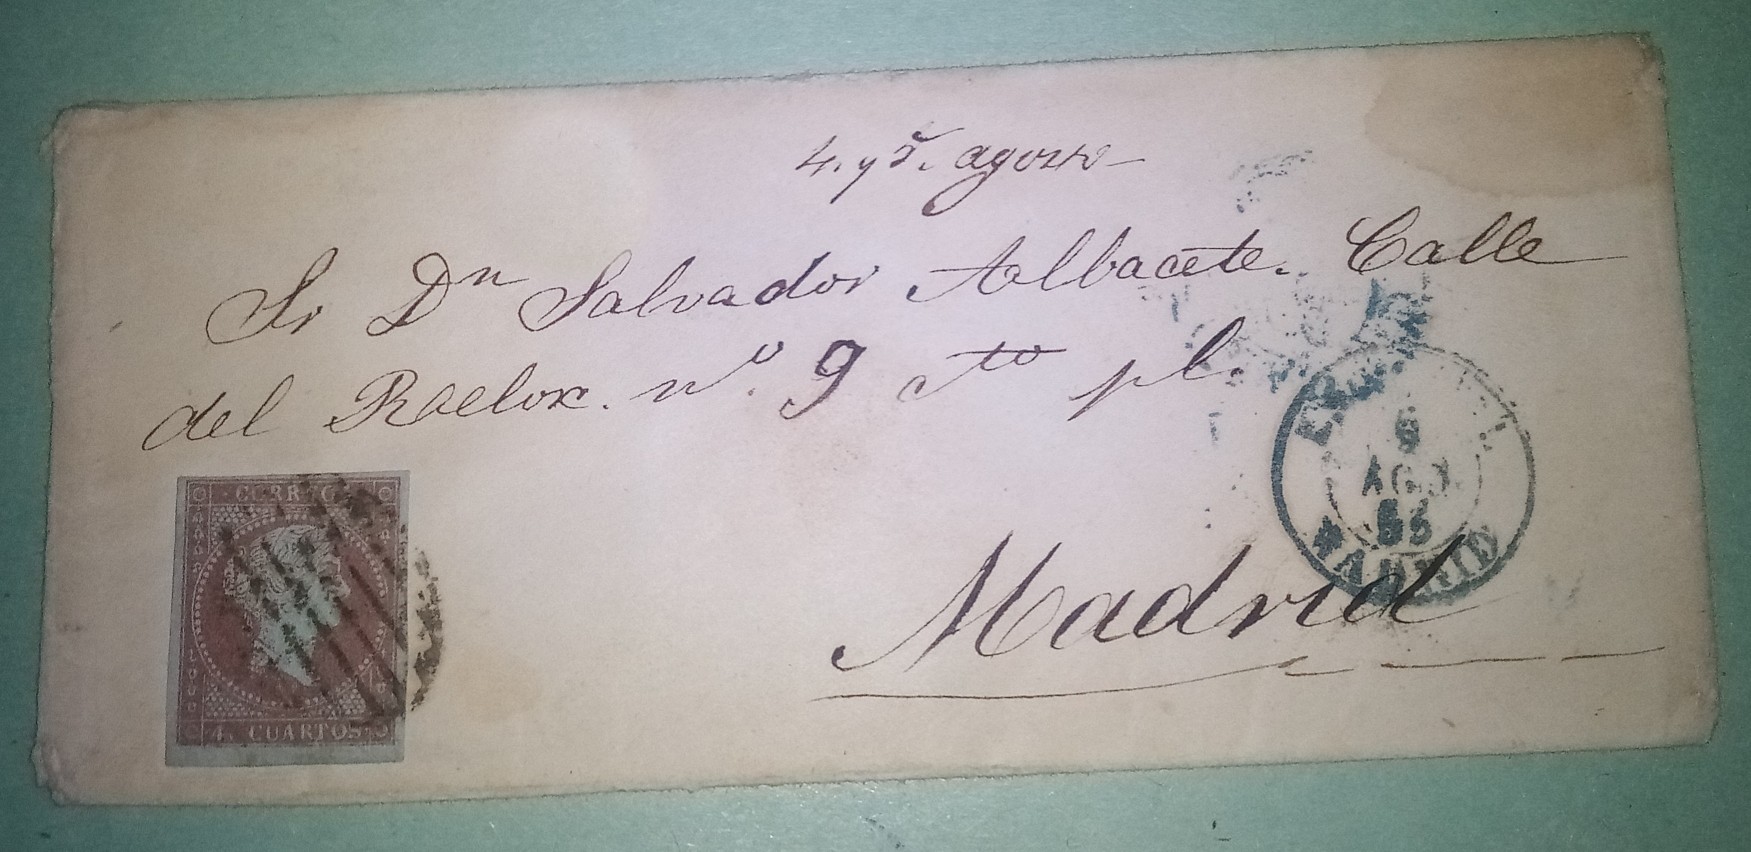 4. y 5. agosto
Sr Dn Salvador Albacete. Calle
del Raelox. nº. 9 cto pl.
Madrid
CORREOS
4. CUARTOS
AGO
MADRID